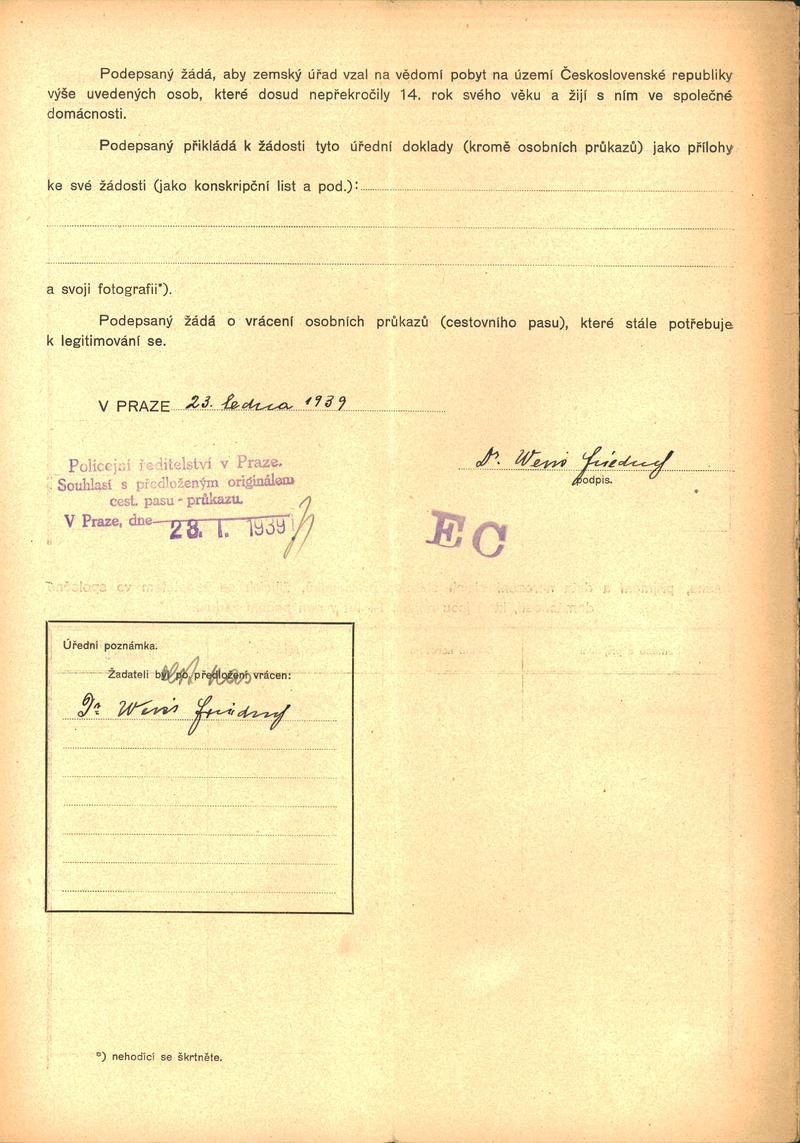 Podepsaný žádá, aby zemský úřad vzal na vědomí pobyt na území Československé republiky
výše uvedených osob, které dosud nepřekročily 14. rok svého věku a žijí s ním ve společné
domácnosti.
Podepsaný přikládá k žádosti tyto úřední doklady (kromě osobních průkazů) jako přílohy
ke své žádosti (jako konskripční list a pod.):
a svoji fotografii*).
Podepsaný žádá o vrácení osobních průkazů (cestovního pasu), které stále potřebuje
k legitimování se.
V PRAZE 23. ledna 1939
Dr. Weiss Friedrich
podpis.
Policejní ředitelství v Praze.
Souhlasí s předloženým originálem
cest. pasu - průkazu.
V Praze, dne 23. I. 1939
EC
Úřední poznámka.
Žadateli byl po předložení vrácen:
Dr Weiss Friedrich
*) nehodící se škrtněte.